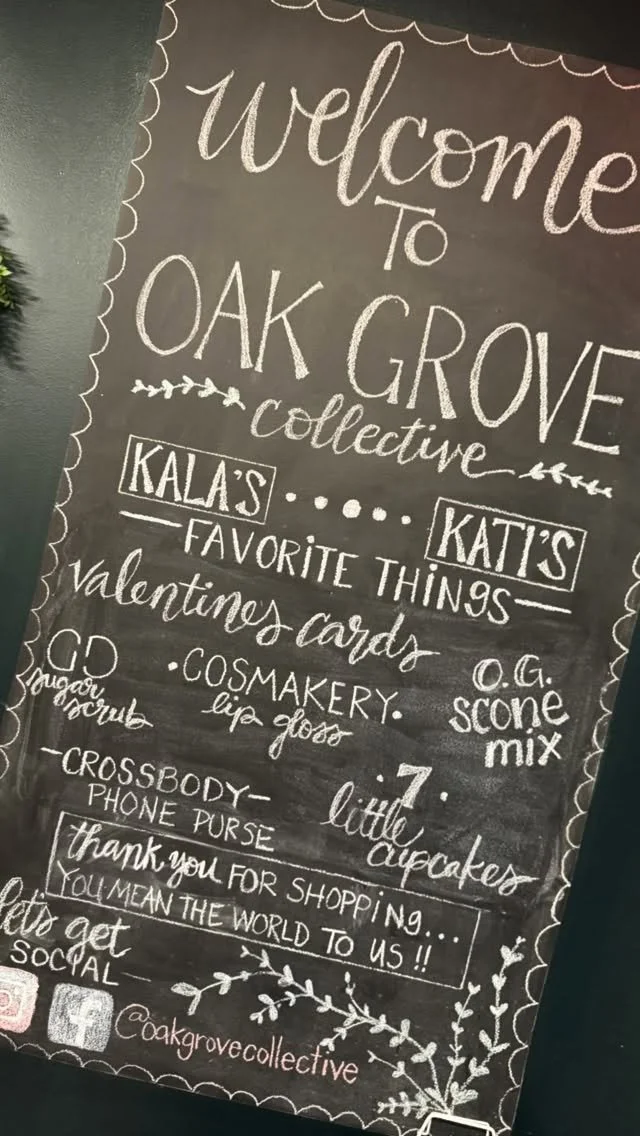 welcome
TO
OAK GROVE
collective
KALA'S KATI'S
FAVORITE THINGS
valentines cards
GD sugar scrub
COSMAKERY
lip gloss
O.G.
scone
mix
-CROSSBODY-
PHONE PURSE
. 7 .
little
cupcakes
thank you FOR SHOPPING...
YOU MEAN THE WORLD TO US !!
let's get
SOCIAL
f @oakgrovecollective